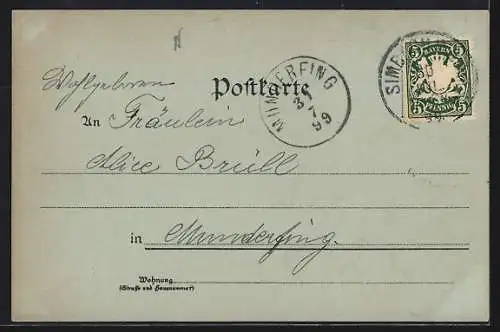 Wohlgeboren
Postkarte
An Fräulein
Alice Brüll
in Munderfing.
Wohnung
(Straße und Hausnummer)
MUNDERFING
31
7
99
BAYERN
5 5
5 5
PFENNIG